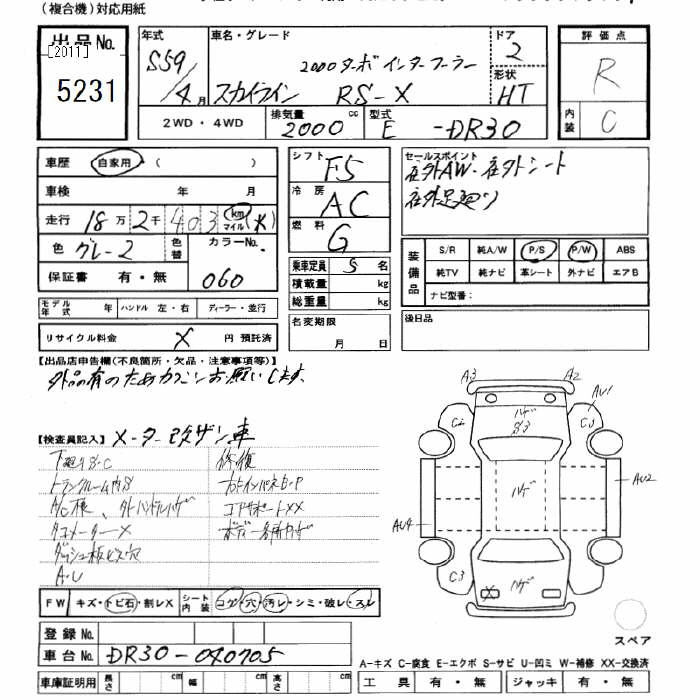 (複合機)対応用紙
出品No.
[2011]
5231
年式
S59
4月
車名・グレード
2000ターボインタークーラー
スカイライン RS-X
ドア
2
形状
HT
2WD・4WD
排気量 2000 cc
型式 E -DR30
評価点
R
内装 C
車歴 自家用 ( )
車検 年 月
走行 18万2千403 km マイル (*)
色 グレー2 色替
カラーNo. 060
保証書 有・無
モデル年式 年 ハンドル 左・右 ディーラー・並行
リサイクル料金 X 円 預託済
シフト F5
冷房 AC
燃料 G
乗車定員 5 名
積載量 kg
総重量 kg
名変期限
月 日
セールスポイント
社外AW・社外シート
社外足廻り
装備品
S/R 純A/W P/S P/W ABS
純TV 純ナビ 革シート 外ナビ エアB
ナビ型番:
後日品
【出品店申告欄(不良箇所・欠品・注意事項等)】
外品有のため カクニンお願いします。
【検査員記入】 メーター改ザン車
下廻りS・C
トランクルーム内S
タコメーターX
ダッシュ板ビス穴
A・U
修復
コアサポートXX
A3
A2
AU1
C2
C3
ハゲ
ハゲ
AU2
AU4
C3
X
ハゲ
FW キズ・トビ石・割レX シート内装 コゲ・穴・汚レ・シミ・破レ・スレ
登録No.
車台No. DR30-040705
車庫証明用 長さ cm 幅 cm 高さ cm
スペア
A-キズ C-腐食 E-エクボ S-サビ U-凹ミ W-補修 XX-交換済
工具 有・無 ジャッキ 有・無